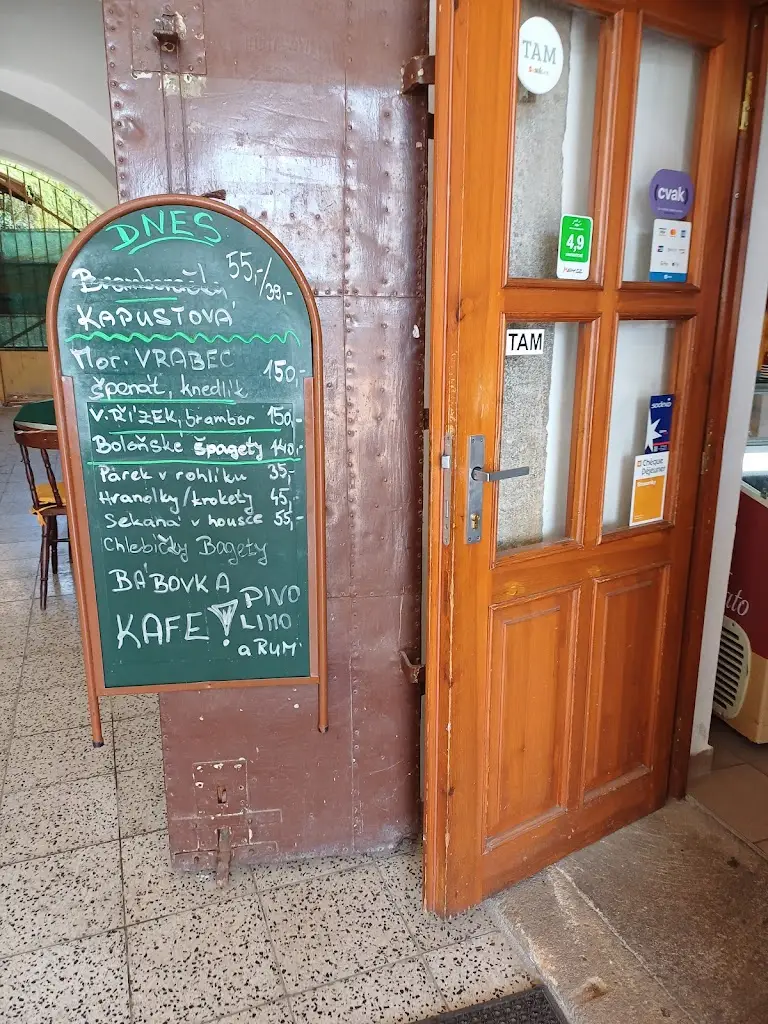 DNES
Bramboračka 55,-/39,-
KAPUSTOVÁ
Mor. VRABEC 150,-
špenát, knedlík
V. ŘÍZEK, brambor 150,-
Boloňské špagety 140,-
Párek v rohlíku 35,-
Hranolky/krokety 45,-
Sekaná v housce 55,-
Chlebíčky Bagety
BÁBOVKA
KAFE! PIVO
LIMO
a RUM
TAM
cvak
4,9
TAM
sodexo
Chèque
Déjeuner